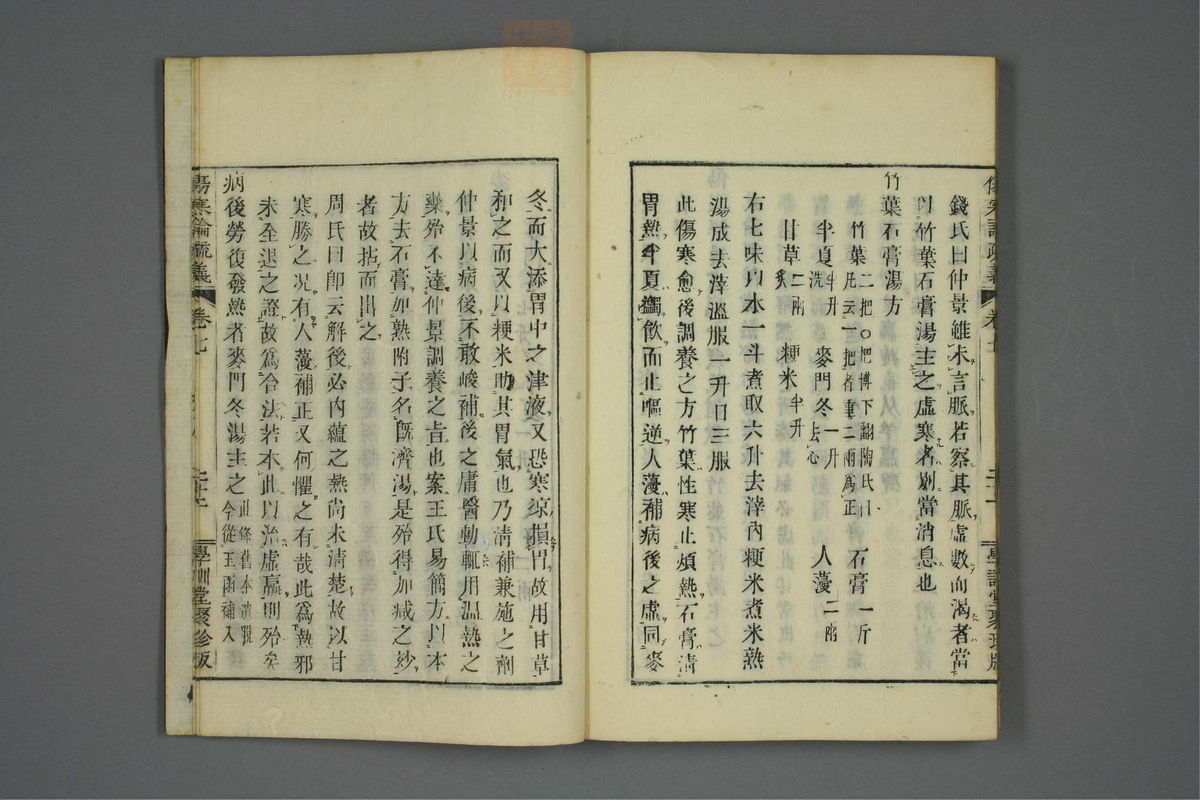 錢氏曰仲景雖未言脈若察其脈虛數而渴者當
以竹葉石膏湯主之虛寒者別當消息也
竹葉石膏湯方
竹葉二把 石膏一斤
半夏半升洗 麥門冬一升去心 人薓二兩
甘草二兩炙 粳米半升
右七味以水一斗煮取六升去滓內粳米煮米熟
湯成去滓溫服一升日三服
此傷寒愈後調養之方竹葉性寒止煩熱石膏清
胃熱半夏蠲飲而止嘔逆人薓補病後之虛同麥
冬而大添胃中之津液又恐寒涼損胃故用甘草
和之而又以粳米助其胃氣也乃清補兼施之劑
仲景以病後不敢峻補後之庸醫動輒用溫熱之
藥殆不達仲景調養之旨也案王氏易簡方以本
方去石膏加熟附子名旣濟湯是殆得加減之妙
者故拈而出之
周氏曰卽云解後必內蘊之熱尚未清楚故以甘
寒勝之况有人薓補正又何懼之有哉此爲熱邪
未全退之證故爲合法若本此以治虛羸則殆矣
病後勞復發熱者麥門冬湯主之此條舊本遺漏今從玉函補入
傷寒論疏義 卷七 學訓堂聚珍版